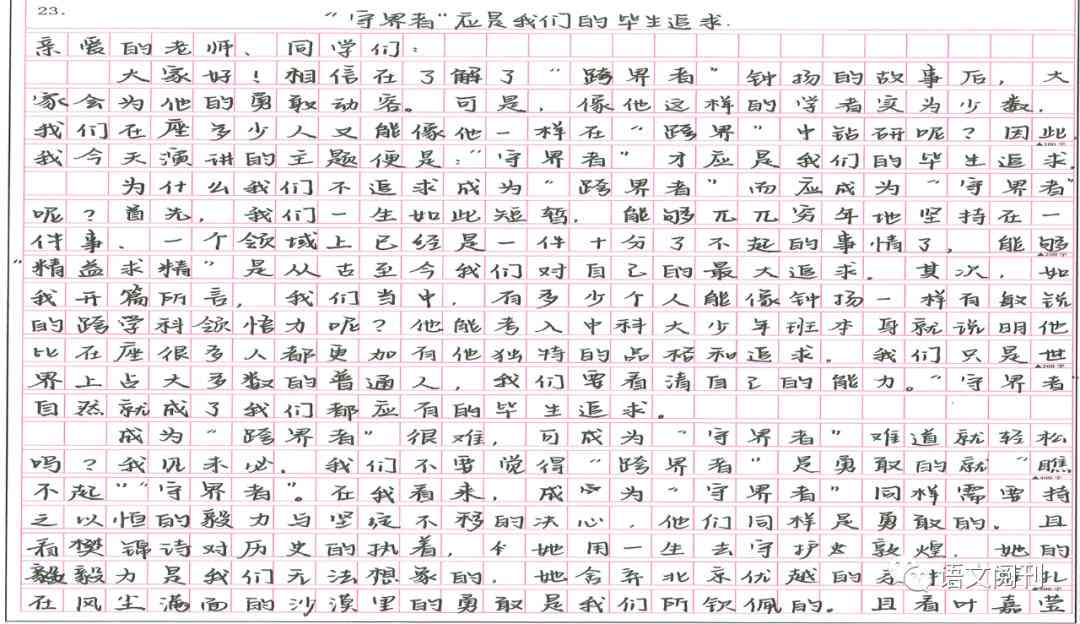 23.
“守界者”应是我们的毕生追求.
亲爱的老师、同学们:
大家好!相信在了解了“跨界者”钟扬的故事后,大
家会为他的勇敢动容。可是,像他这样的学者实为少数,
我们在座多少人又能像他一样在“跨界”中钻研呢?因此,
我今天演讲的主题便是:“守界者”才应是我们的毕生追求.
为什么我们不追求成为“跨界者”而应成为“守界者”
呢?首先,我们一生如此短暂,能够兀兀穷年地坚持在一
件事、一个领域上已经是一件十分了不起的事情了,能够
“精益求精”是从古至今我们对自己的最大追求。其次,如
我开篇所言,我们当中,有多少个人能像钟扬一样有敏锐
的跨学科领悟力呢?他能考入中科大少年班本身就说明他
比在座很多人都更加有他独特的品格和追求。我们只是世
界上占大多数的普通人,我们要看清自己的能力。“守界者”
自然就成了我们都应有的毕生追求。
成为“跨界者”很难,可成为“守界者”难道就轻松
吗?我见未必。我们不要觉得“跨界者”是勇敢的就“瞧
不起”“守界者”。在我看来,成为“守界者”同样需要持
之以恒的毅力与坚定不移的决心,他们同样是勇敢的。且
看樊锦诗对历史的执着,她用一生去守护敦煌,她的
毅力是我们无法想象的,她舍弃北京优越的
在风尘满面的沙漠里的勇敢是我们所钦佩的。且看叶嘉莹
语文阅刊